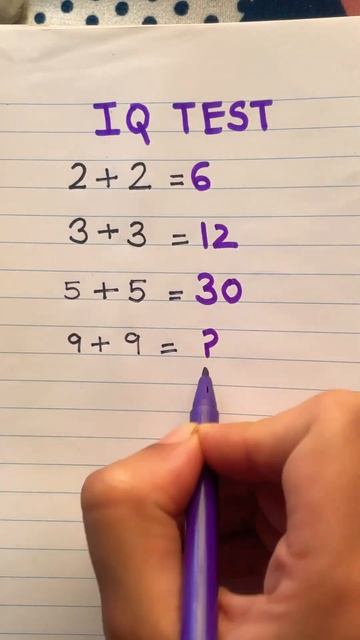 IQ TEST
2 + 2 = 6
3 + 3 = 12
5 + 5 = 30
9 + 9 = ?